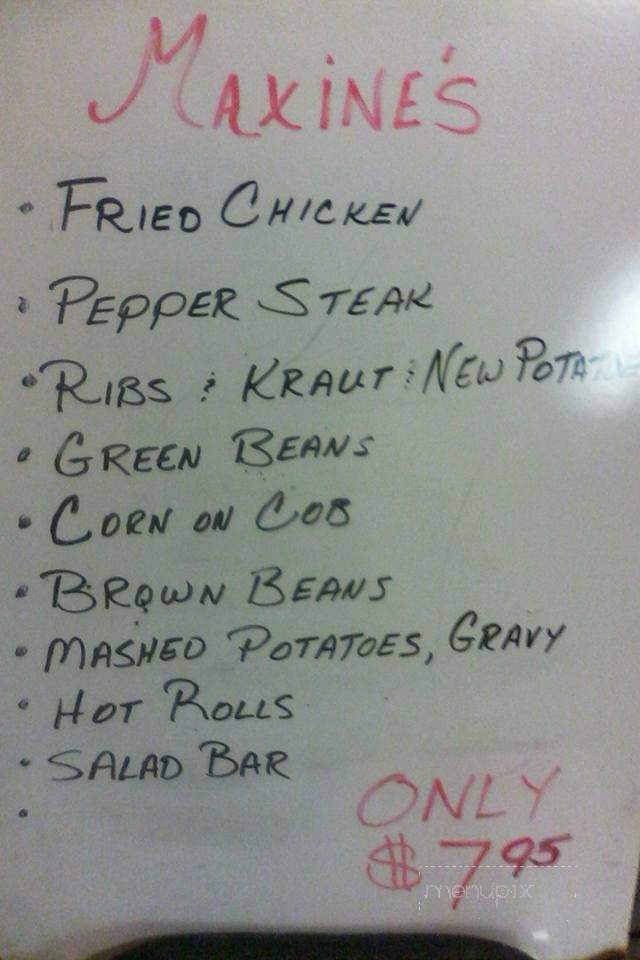 MAXINE'S
• FRIED CHICKEN
• PEPPER STEAK
• RIBS & KRAUT & NEW POTAT
• GREEN BEANS
• CORN ON COB
• BROWN BEANS
• MASHED POTATOES, GRAVY
• HOT ROLLS
• SALAD BAR
•
ONLY
$7.95
menupix